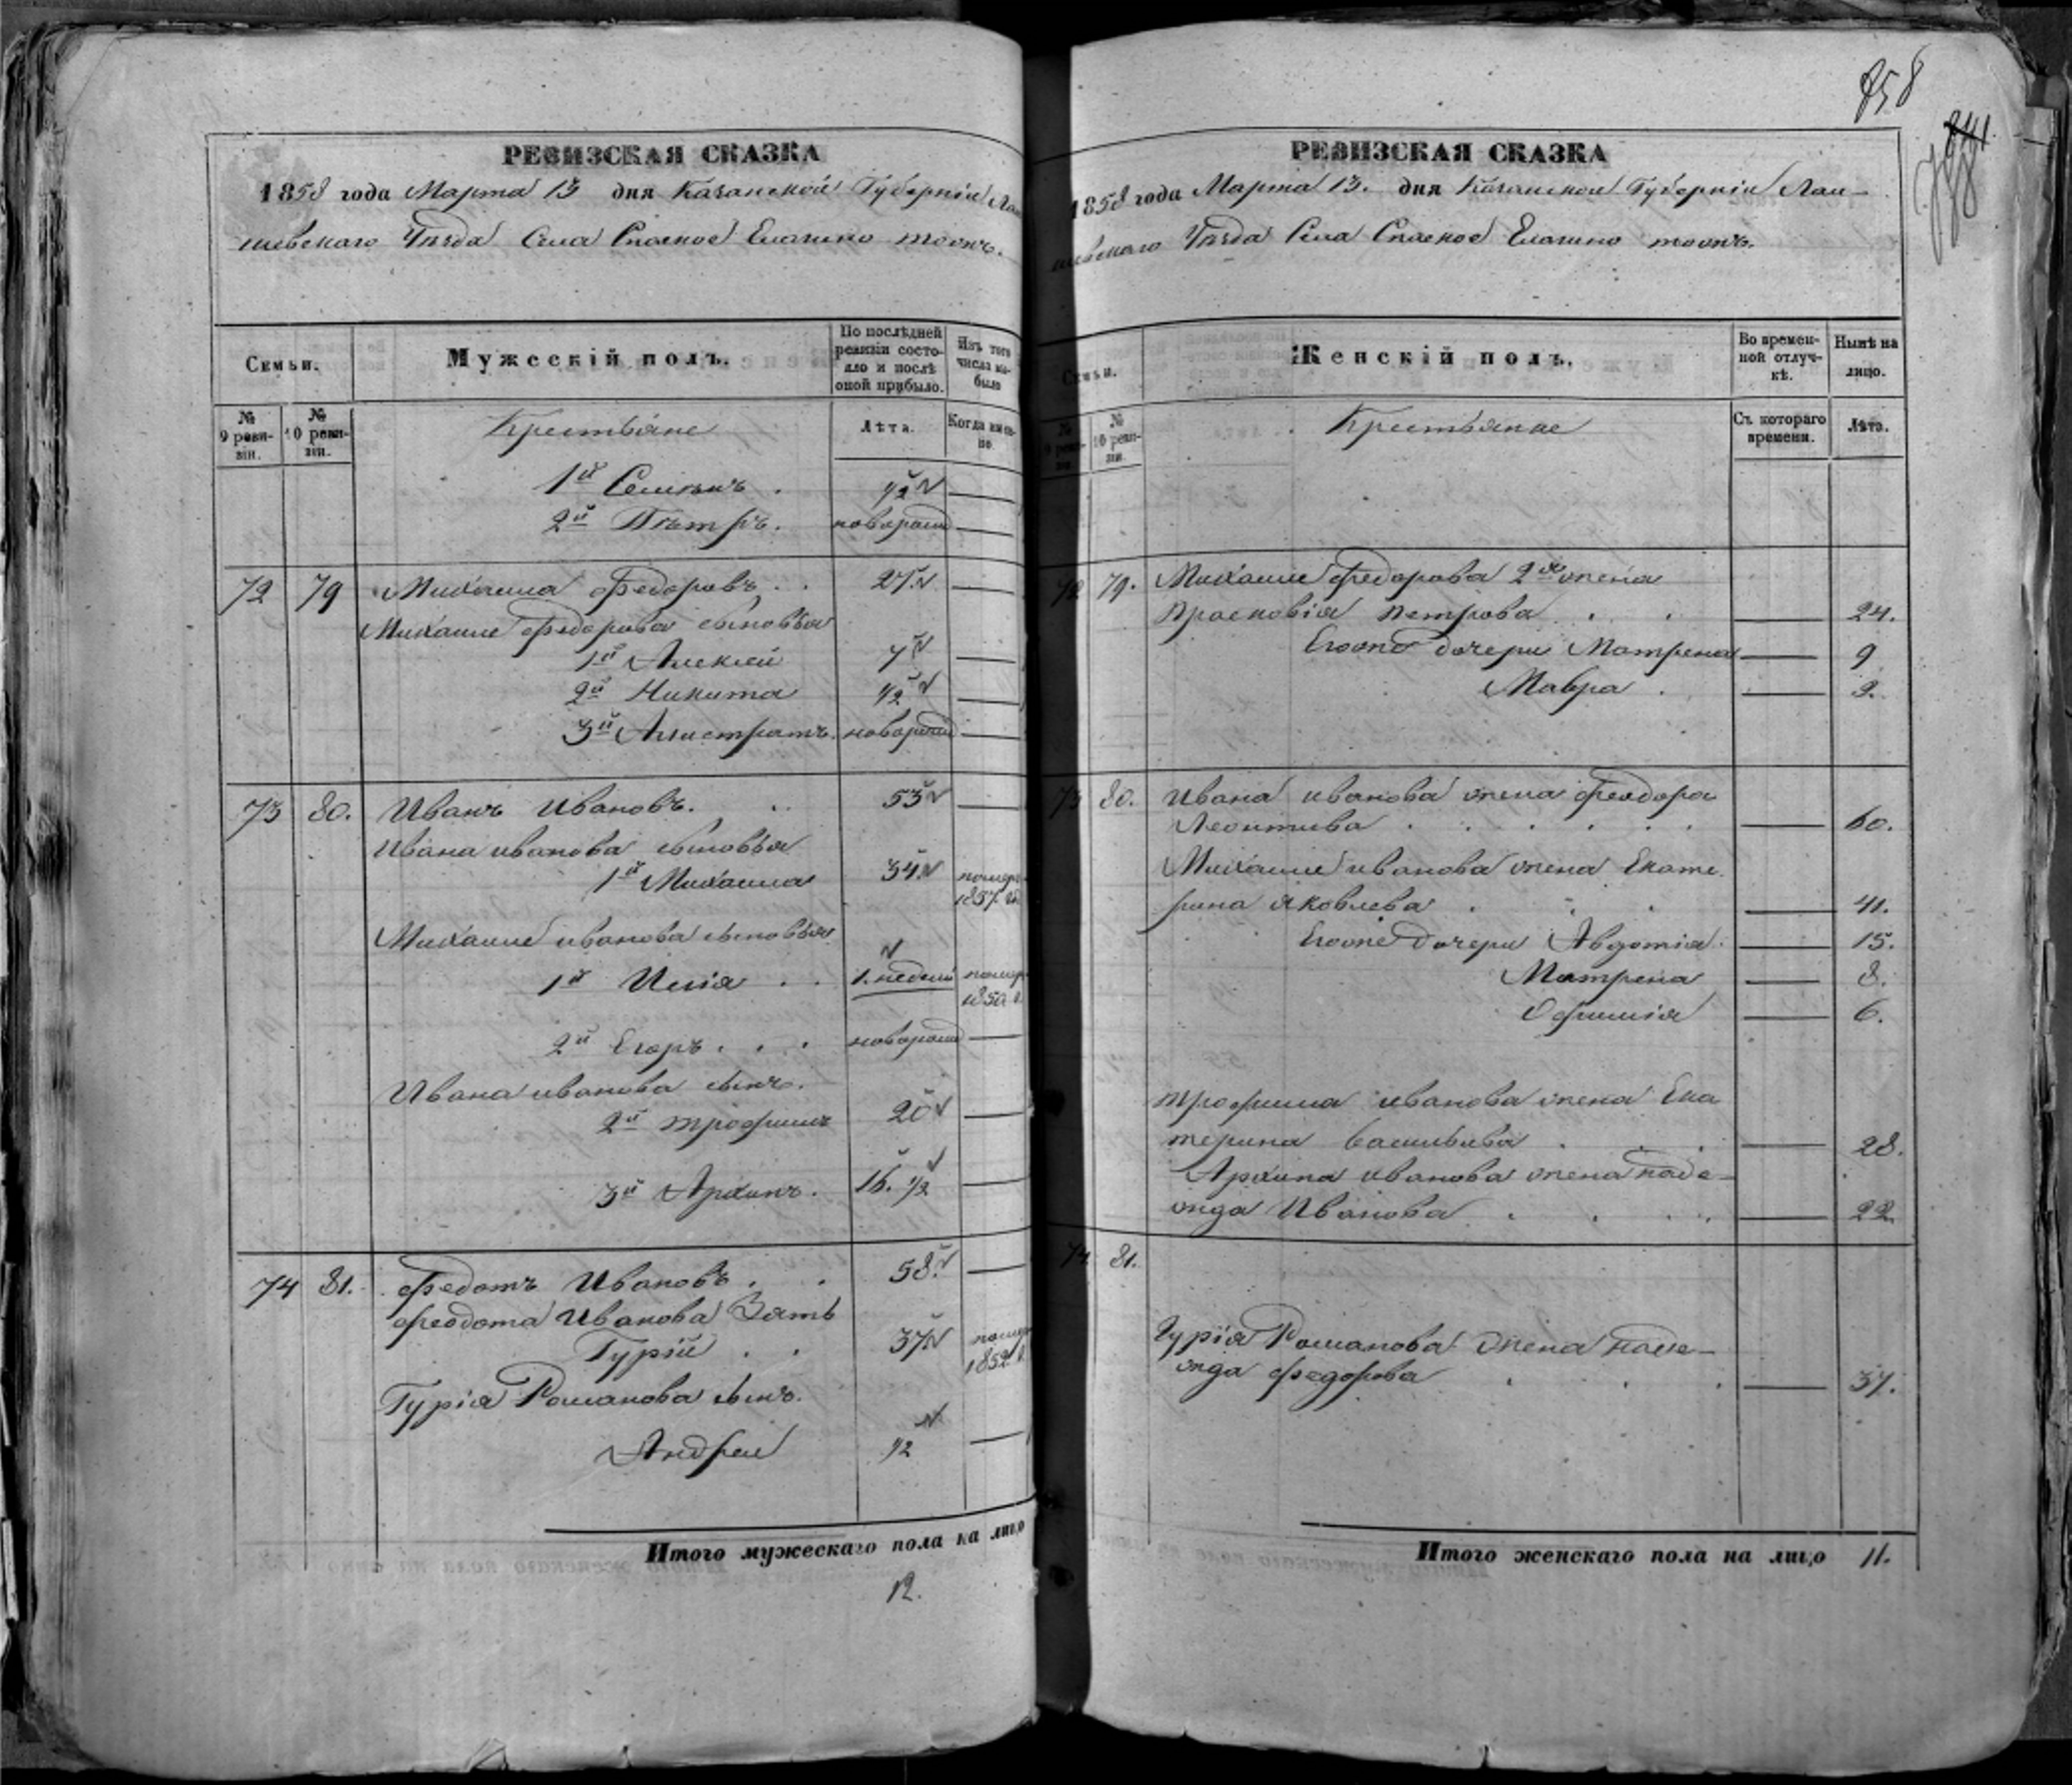 РЕВИЗСКАЯ СКАЗКА
1858 года Марта 13 дня Казанской Губернiи Лаи
шевскаго Уѣзда Села Спаское Елагино тожъ.
Семьи.
Мужескiй полъ.
По послѣдней ревизiи состояло и послѣ оной прибыло.
Изъ того числа выбыло
№ 9 ревизiи.
№ 10 ревизiи.
Крестьяне
Лѣта.
Когда именно.
1й Семенъ . 1/2
2й Пѣтръ. новорожд
72 79 Михаила Федоровъ . . 27.
Михаиле Федорова сыновья
1й Алексѣй 7
2й Никита 1/2
3й Алистратъ. новорожд
73 80. Иванъ Ивановъ. . . 53
Ивана иванова сыновья
1й Михаила 34 помер 1857. го
Михаиле иванова сыновья
1й Илiя . . 1. недели помер 1850 г.
2й Егоръ . . . новорожд
Ивана иванова сынъ.
2й Трофимъ 20
3й Архипъ. 16. 1/2
74 81. Федотъ Ивановъ . . 58.
Феодота Иванова Зять
Гурiй . . 37 помер 1852 г.
Гурiя Романова сынъ.
Андреи 1/2
Итого мужескаго пола на лицо
12.
858
841
РЕВИЗСКАЯ СКАЗКА
1858 года Марта 13. дня Казанской Губернiи Лаи-
шевскаго Уѣзда Села Спаское Елагино тожъ.
Семьи.
Женскiй полъ.
Во временной отлучкѣ.
Нынѣ на лицо.
№ 9 ревизiи.
№ 10 ревизiи.
Крестьянке
Съ котораго времени.
Лѣта.
72 79. Михаиле Федорова 2я жена
Прасковiя Петрова . . 24.
Егоже дочери Матрена 9
Мавра . 2.
73 80. Ивана иванова жена Феодора
Леонтиева . . . . . . 60.
Михаиле иванова жена Екате
рина Яковлева . . . 41.
Егоже дочери Авдотiя. 15.
Матрена 8.
Офимiя 6.
Трофима иванова жена Ека
терина Васильива . . . 28.
Архипа иванова жена Наде-
жда Иванова . . . . 22
74 81.
Гурiя Романова жена Наде-
жда Федорова . . . 37.
Итого женскаго пола на лицо 11.